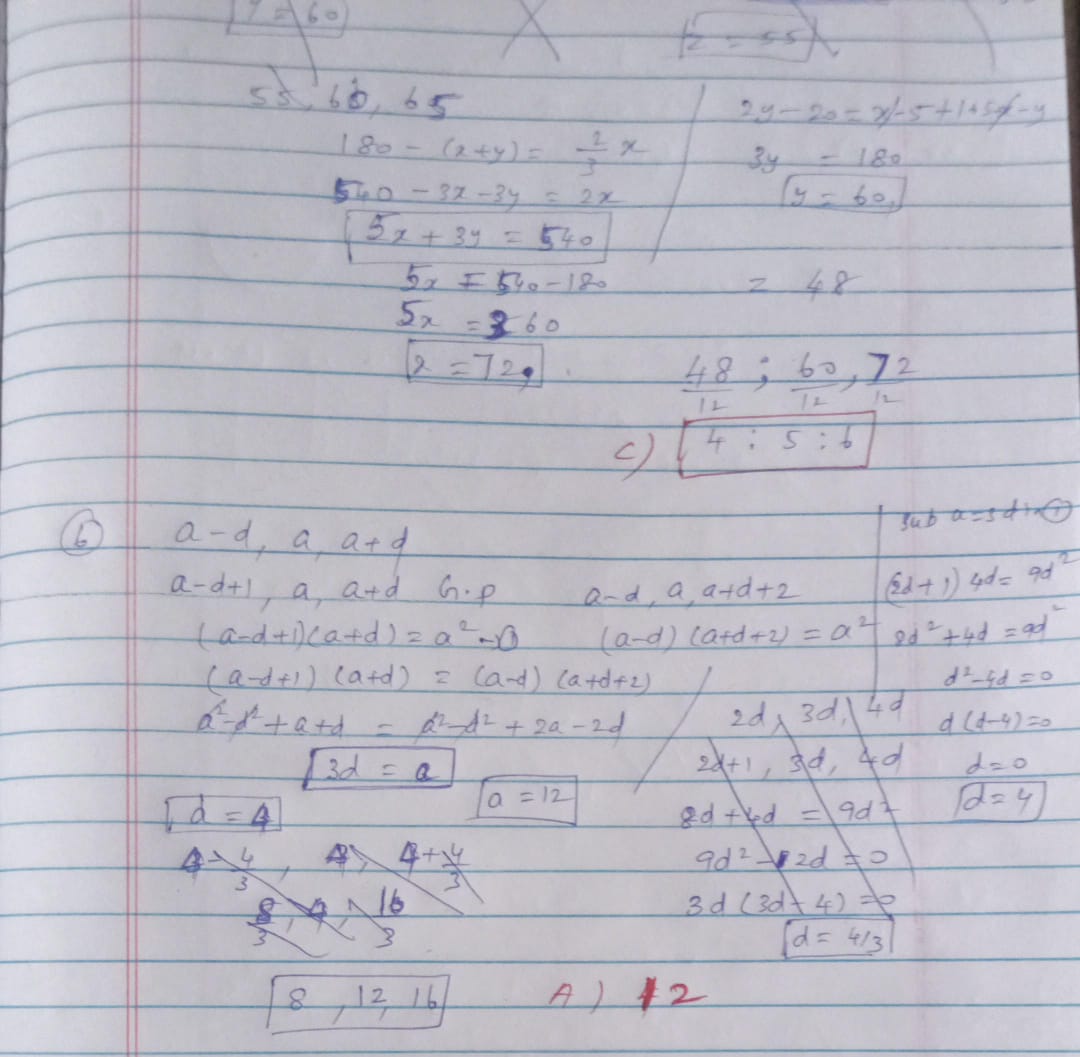 y = 60
z = 55
55, 60, 65
180 - (x+y) = 2/3 x
540 - 3x - 3y = 2x
5x + 3y = 540
5x = 540 - 180
5x = 360
x = 72
3y = 180
y = 60
= 48
48/12 ; 60/12 , 72/12
C) 4 : 5 : 6
6 a-d, a, a+d
a-d+1, a, a+d G.P a-d, a, a+d+2
(a-d+1)(a+d) = a² (a-d)(a+d+2) = a²
(a-d+1) (a+d) = (a-d) (a+d+2)
a²-d²+a+d = a²-d²+2a-2d
3d = a
d = 4 a = 12
4 - 4/3, 4, 4+4/3
8/3, 4, 16/3
8, 12, 16
2d, 3d, 4d
2d+1, 3d, 4d
8d+4d = 9d²
9d² - 12d = 0
3d(3d-4) = 0
d = 4/3
sub a=3d in 1
(2d+1) 4d = 9d²
8d²+4d = 9d²
d²-4d=0
d(d-4)=0
d=0
d=4
A) 12